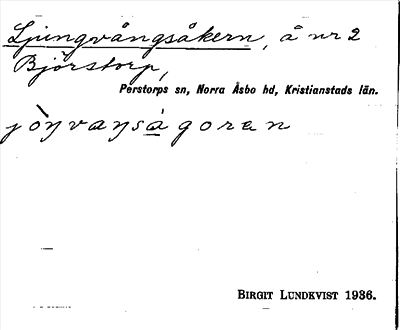 Ljungvångsåkern, å nr 2
Björstorp,
Perstorps sn, Norra Åsbo hd, Kristianstads län.
jòŋvaŋsågoren
BIRGIT LUNDKVIST 1936.